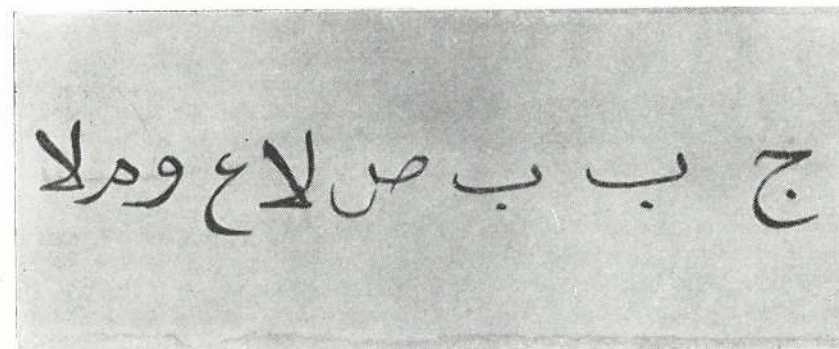 ج ب ب ص لا ع و م لا